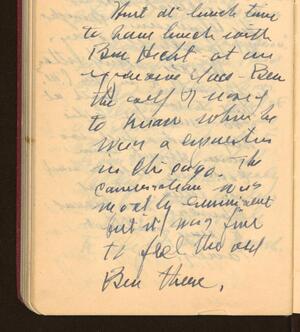 Hurt at lunch time
to have lunch with
Ben Hecht at an
expensive place - Ben
the self I used
to know when he
was a
in Chicago. The
conversation was
mostly
but it was fine
to feel the old
Ben there.